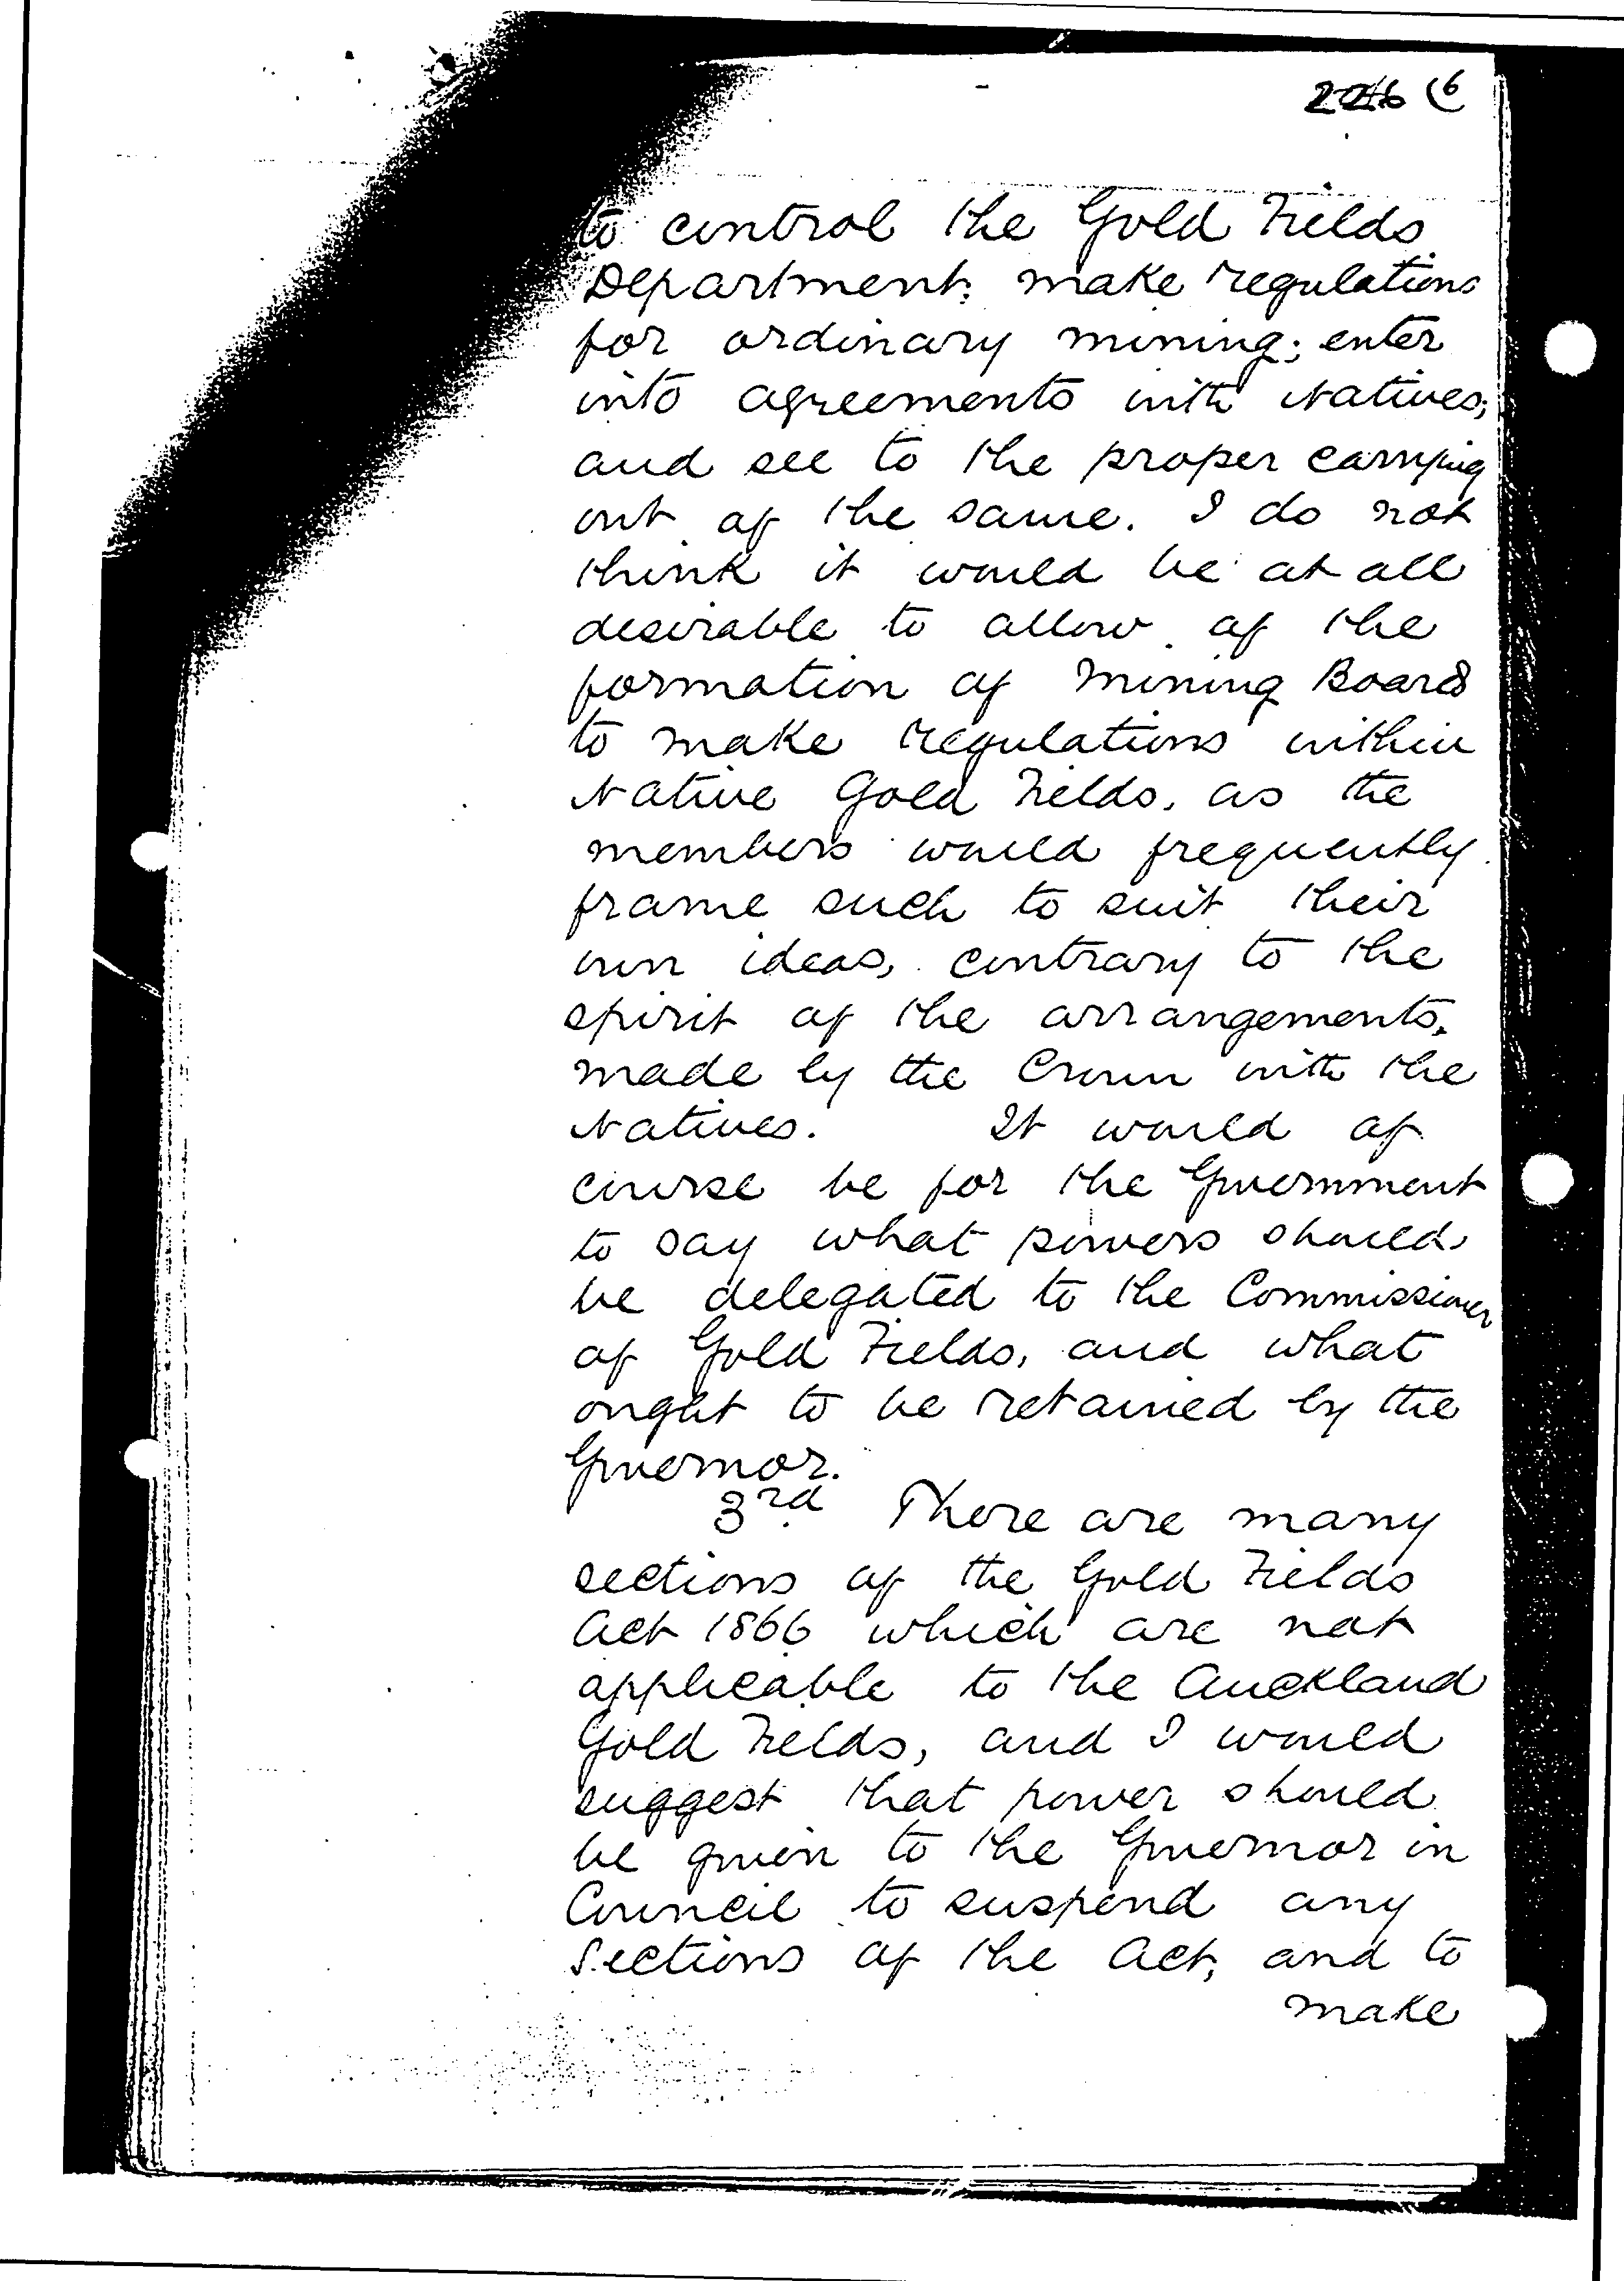 to control the Gold Fields
Department; make regulations
for ordinary mining; enter
into agreements with Natives;
and see to the proper carrying
out of the same. I do not
think it would be at all
desirable to allow of the
formation of Mining Boards
to make regulations within
Native Gold Fields, as the
members would frequently
frame such to suit their
own ideas, contrary to the
spirit of the arrangements,
made by the Crown with the
Natives. It would of
course be for the Government
to say what powers should
be delegated to the Commissioner
of Gold Fields, and what
ought to be retained by the
Governor.
3rd There are many
sections of the Gold Fields
Act 1866 which are not
applicable to the Auckland
Gold Fields, and I would
suggest that power should
be given to the Governor in
Council to suspend any
Sections of the Act, and to
make